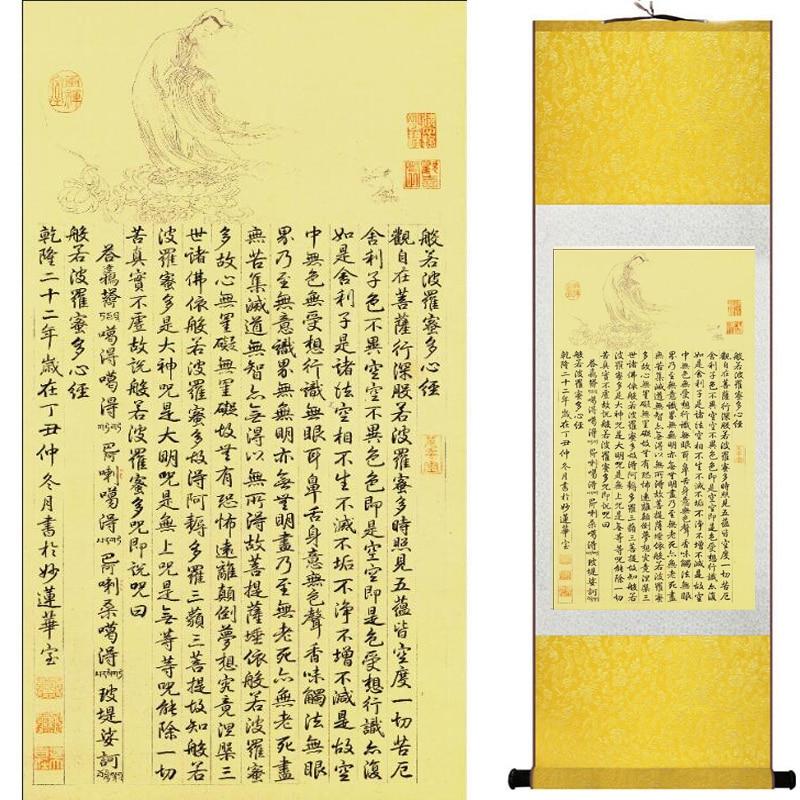 般若波羅蜜多心經
觀自在菩薩行深般若波羅蜜多時照見五蘊皆空度一切苦厄
舍利子色不異空空不異色色即是空空即是色受想行識亦復
如是舍利子是諸法空相不生不滅不垢不淨不增不減是故空
中無色無受想行識無眼耳鼻舌身意無色聲香味觸法無眼
界乃至無意識界無無明亦無無明盡乃至無老死亦無老死盡
無苦集滅道無智亦無得以無所得故菩提薩埵依般若波羅蜜
多故心無罣礙無罣礙故無有恐怖遠離顛倒夢想究竟涅槃三
世諸佛依般若波羅蜜多故得阿耨多羅三藐三菩提故知般若
波羅蜜多是大神呪是大明呪是無上呪是無等等呪能除一切
苦真實不虛故說般若波羅蜜多呪即說呪曰
噶得噶得 噶得 桑噶得 玻堤娑訶
般若波羅蜜多心經
乾隆二十二年歲在丁丑仲冬月書於妙蓮華室